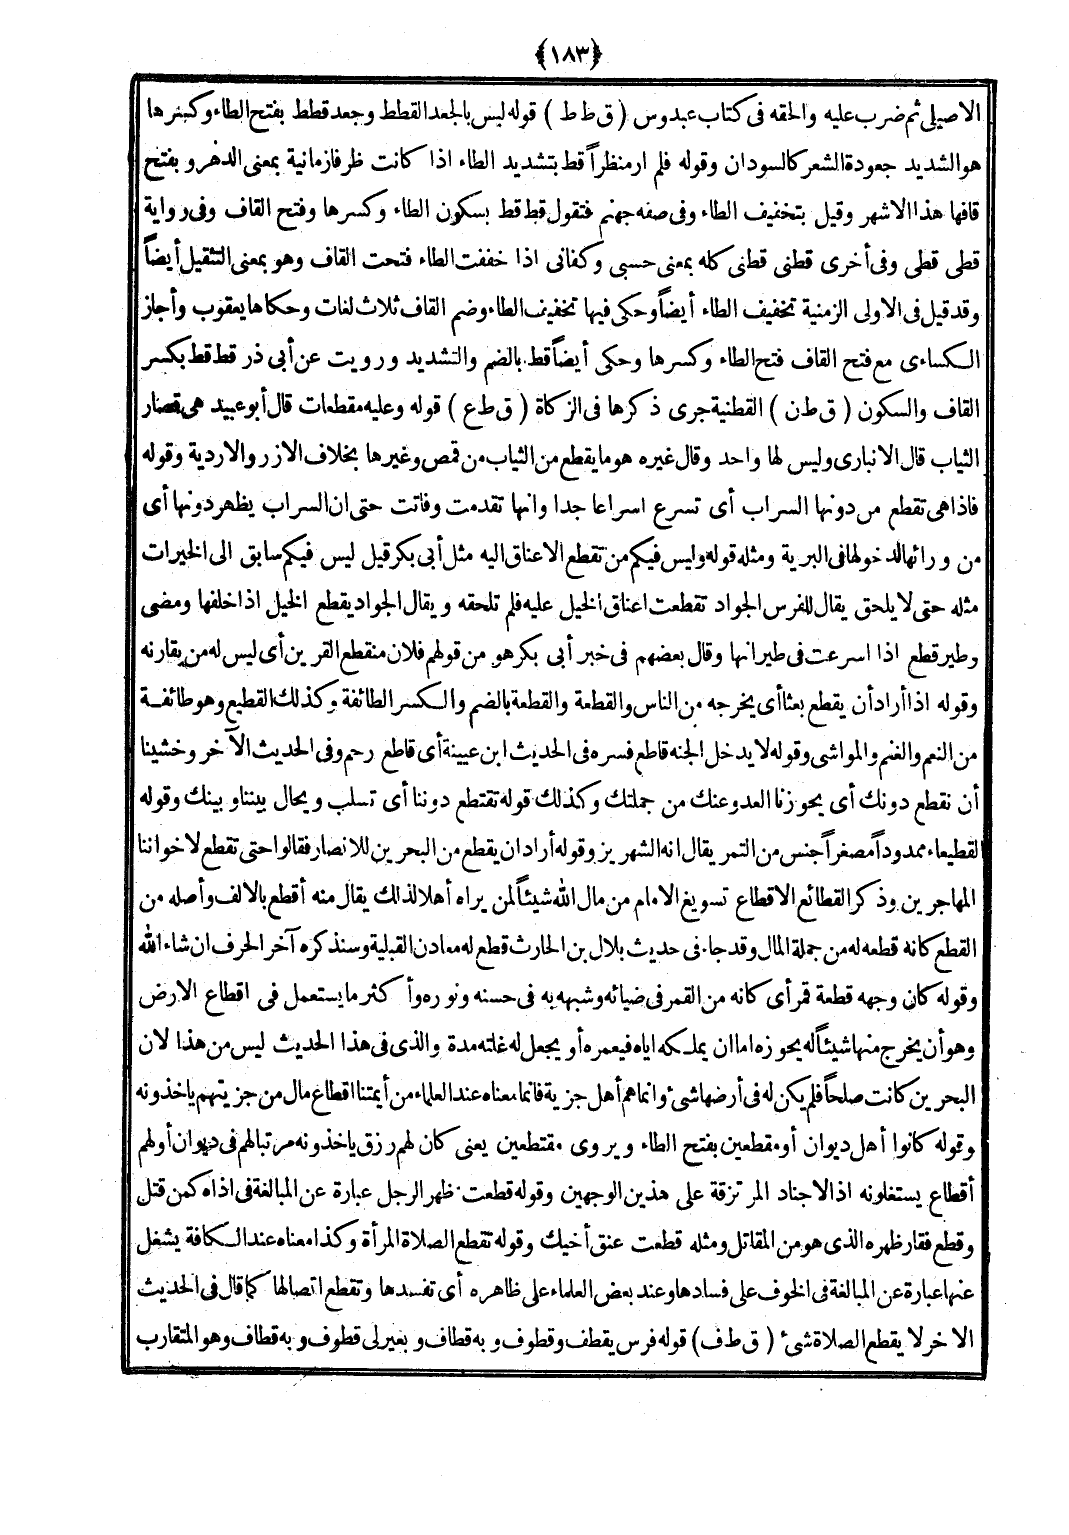 ﴿١٨٣﴾
الاصيلى ثم ضرب عليه والحقه فى كتاب عبدوس (ق ط ط) قوله ليس بالجعد القطط وجعد قطط بفتح الطاء وكسرها
هو الشديد جعودة الشعر كالسودان وقوله فلم ار منظراً قط بتشديد الطاء اذا كانت ظرفا زمانية بمعنى الدهر و بفتح
قافها هذا الاشهر وقيل بتخفيف الطاء وفى صفه جهنم فتقول قط قط بسكون الطاء وكسرها وفتح القاف وفى رواية
قطى قطى وفى أخرى قطنى قطنى كله بمعنى حسبى وكفانى اذا خففت الطاء فتحت القاف وهو بمعنى التثقيل أيضاً
وقد قيل فى الاولى الزمنية تخفيف الطاء أيضاً وحكى فيها تخفيف الطاء وضم القاف ثلاث لغات وحكاها يعقوب وأجاز
الكساءى مع فتح القاف فتح الطاء وكسرها وحكى أيضاً قط بالضم والتشديد ورويت عن أبى ذر قط قط بكسر
القاف والسكون (ق ط ن) القطنية جرى ذكرها فى الزكاة (ق ط ع) قوله وعليه مقطعات قال أبو عبيد هى قصار
الثياب قال الانبارى وليس لها واحد وقال غيره هو ما يقطع من الثياب من قمص وغيرها بخلاف الازر والاردية وقوله
فاذا هى تقطع من دونها السراب أى تسرع اسراعا جدا وانها تقدمت وفاتت حتى ان السراب يظهر دونها أى
من ورائها لدخولها فى البرية ومثله قوله وليس فيكم من تقطع الاعناق اليه مثل أبى بكر قيل ليس فيكم سابق الى الخيرات
مثله حتى لا يلحق يقال للفرس الجواد تقطعت اعناق الخيل عليه فلم تلحقه ويقال الجواد يقطع الخيل اذا خلفها ومضى
وطير قطع اذا اسرعت فى طيرانها وقال بعضهم فى خبر أبى بكر هو من قولهم فلان منقطع القرين أى ليس له من يقارنه
وقوله اذا أراد أن يقطع بعثا أى يخرجه من الناس والقطعة والقطعة بالضم والكسر الطائفة وكذلك القطيع وهو طائفة
من النعم والغنم والمواشى وقوله لا يدخل الجنه قاطع فسره فى الحديث ابن عيينة أى قاطع رحم وفى الحديث الآخر وخشينا
أن نقطع دونك أى يحوزنا العدو عنك من جملتك وكذلك قوله تقتطع دوننا أى تسلب ويحال بيننا وبينك وقوله
القطيعاء ممدوداً مصغراً جنس من التمر يقال انه الشهريز وقوله أراد ان يقطع من البحرين للانصار فقالوا حتى تقطع لاخواننا
المهاجرين وذكر القطائع الاقطاع تسويغ الامام من مال الله شيئاً لمن يراه أهلا لذلك يقال منه أقطع بالالف وأصله من
القطع كانه قطعه له من جملة المال وقد جاء فى حديث بلال بن الحارث قطع له معادن القبلية وسنذكره آخر الحرف ان شاء الله
وقوله كان وجهه قطعة قمر أى كانه من القمر فى ضيائه وشبهه به فى حسنه ونوره وأكثر ما يستعمل فى اقطاع الارض
وهو أن يخرج منها شيئاً له يحوزه اما ان يملكه اياه فيعمره أو يجعل له غلته مدة والذى فى هذا الحديث ليس من هذا لان
البحرين كانت صلحاً فلم يكن له فى أرضها شىء وانما هم أهل جزية فانما معناه عند العلماء من أيمتنا اقطاع مال من جزيتهم ياخذونه
وقوله كانوا أهل ديوان أو مقطعين بفتح الطاء ويروى مقتطعين يعنى كان لهم رزق ياخذونه مرتبا لهم فى ديوان أو لهم
أقطاع يستغلونه اذ الاجناد المرتزقة على هذين الوجهين وقوله قطعت ظهر الرجل عبارة عن المبالغة فى اذاه كمن قتل
وقطع فقار ظهره الذى هو من المقاتل ومثله قطعت عنق أخيك وقوله تقطع الصلاة المرأة وكذا معناه عند الكافة يشغل
عنها عبارة عن المبالغة فى الخوف على فسادها وعند بعض العلماء على ظاهره أى تفسدها وتقطع اتصالها كما قال فى الحديث
الاخر لا يقطع الصلاة شىء (ق ط ف) قوله فرس يقطف وقطوف و به قطاف و بعير لى قطوف و به قطاف وهو المتقارب